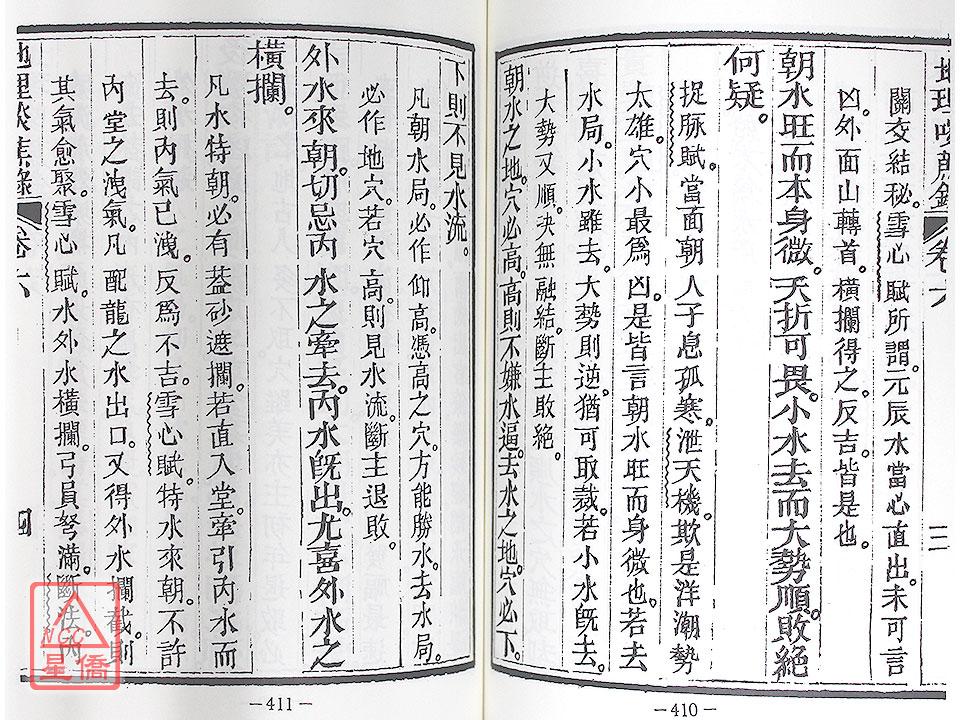 關交結秘。雪心賦所謂。元辰水當心直出。未可言
凶。外面山轉首。橫攔得之。反吉。皆是也。
朝水旺而本身微。夭折可畏。小水去而大勢順。敗絕
何疑。
捉脉賦。當面朝入子息孤寒。泄天機。欺是洋潮勢
太雄。穴小最爲凶。是皆言朝水旺而身微也。若去
水局。小水雖去。大勢則逆。猶可取裁。若小水旣去。
大勢又順。決無融結。斷主敗絕。
朝水之地。穴必高。高則不嫌水逼。去水之地。穴必下。
三
下則不見水流。
凡朝水局。必作仰高。憑高之穴。方能勝水。去水局。
必作地穴。若穴高。則見水流。斷主退敗。
外水來朝。切忌內水之牽去。內水旣出。尤喜外水之
橫攔。
凡水特朝。必有葢砂遮攔。若直入堂。牽引內水而
去。則內氣已洩。反爲不吉。雪心賦。特水來朝。不許
內堂之洩氣。凡配龍之水出口。又得外水攔截。則
其氣愈聚。雪心賦。水外水橫攔。弓員弩滿。斷法。內
卷六
四
NCC
星僑
—411—
—410—